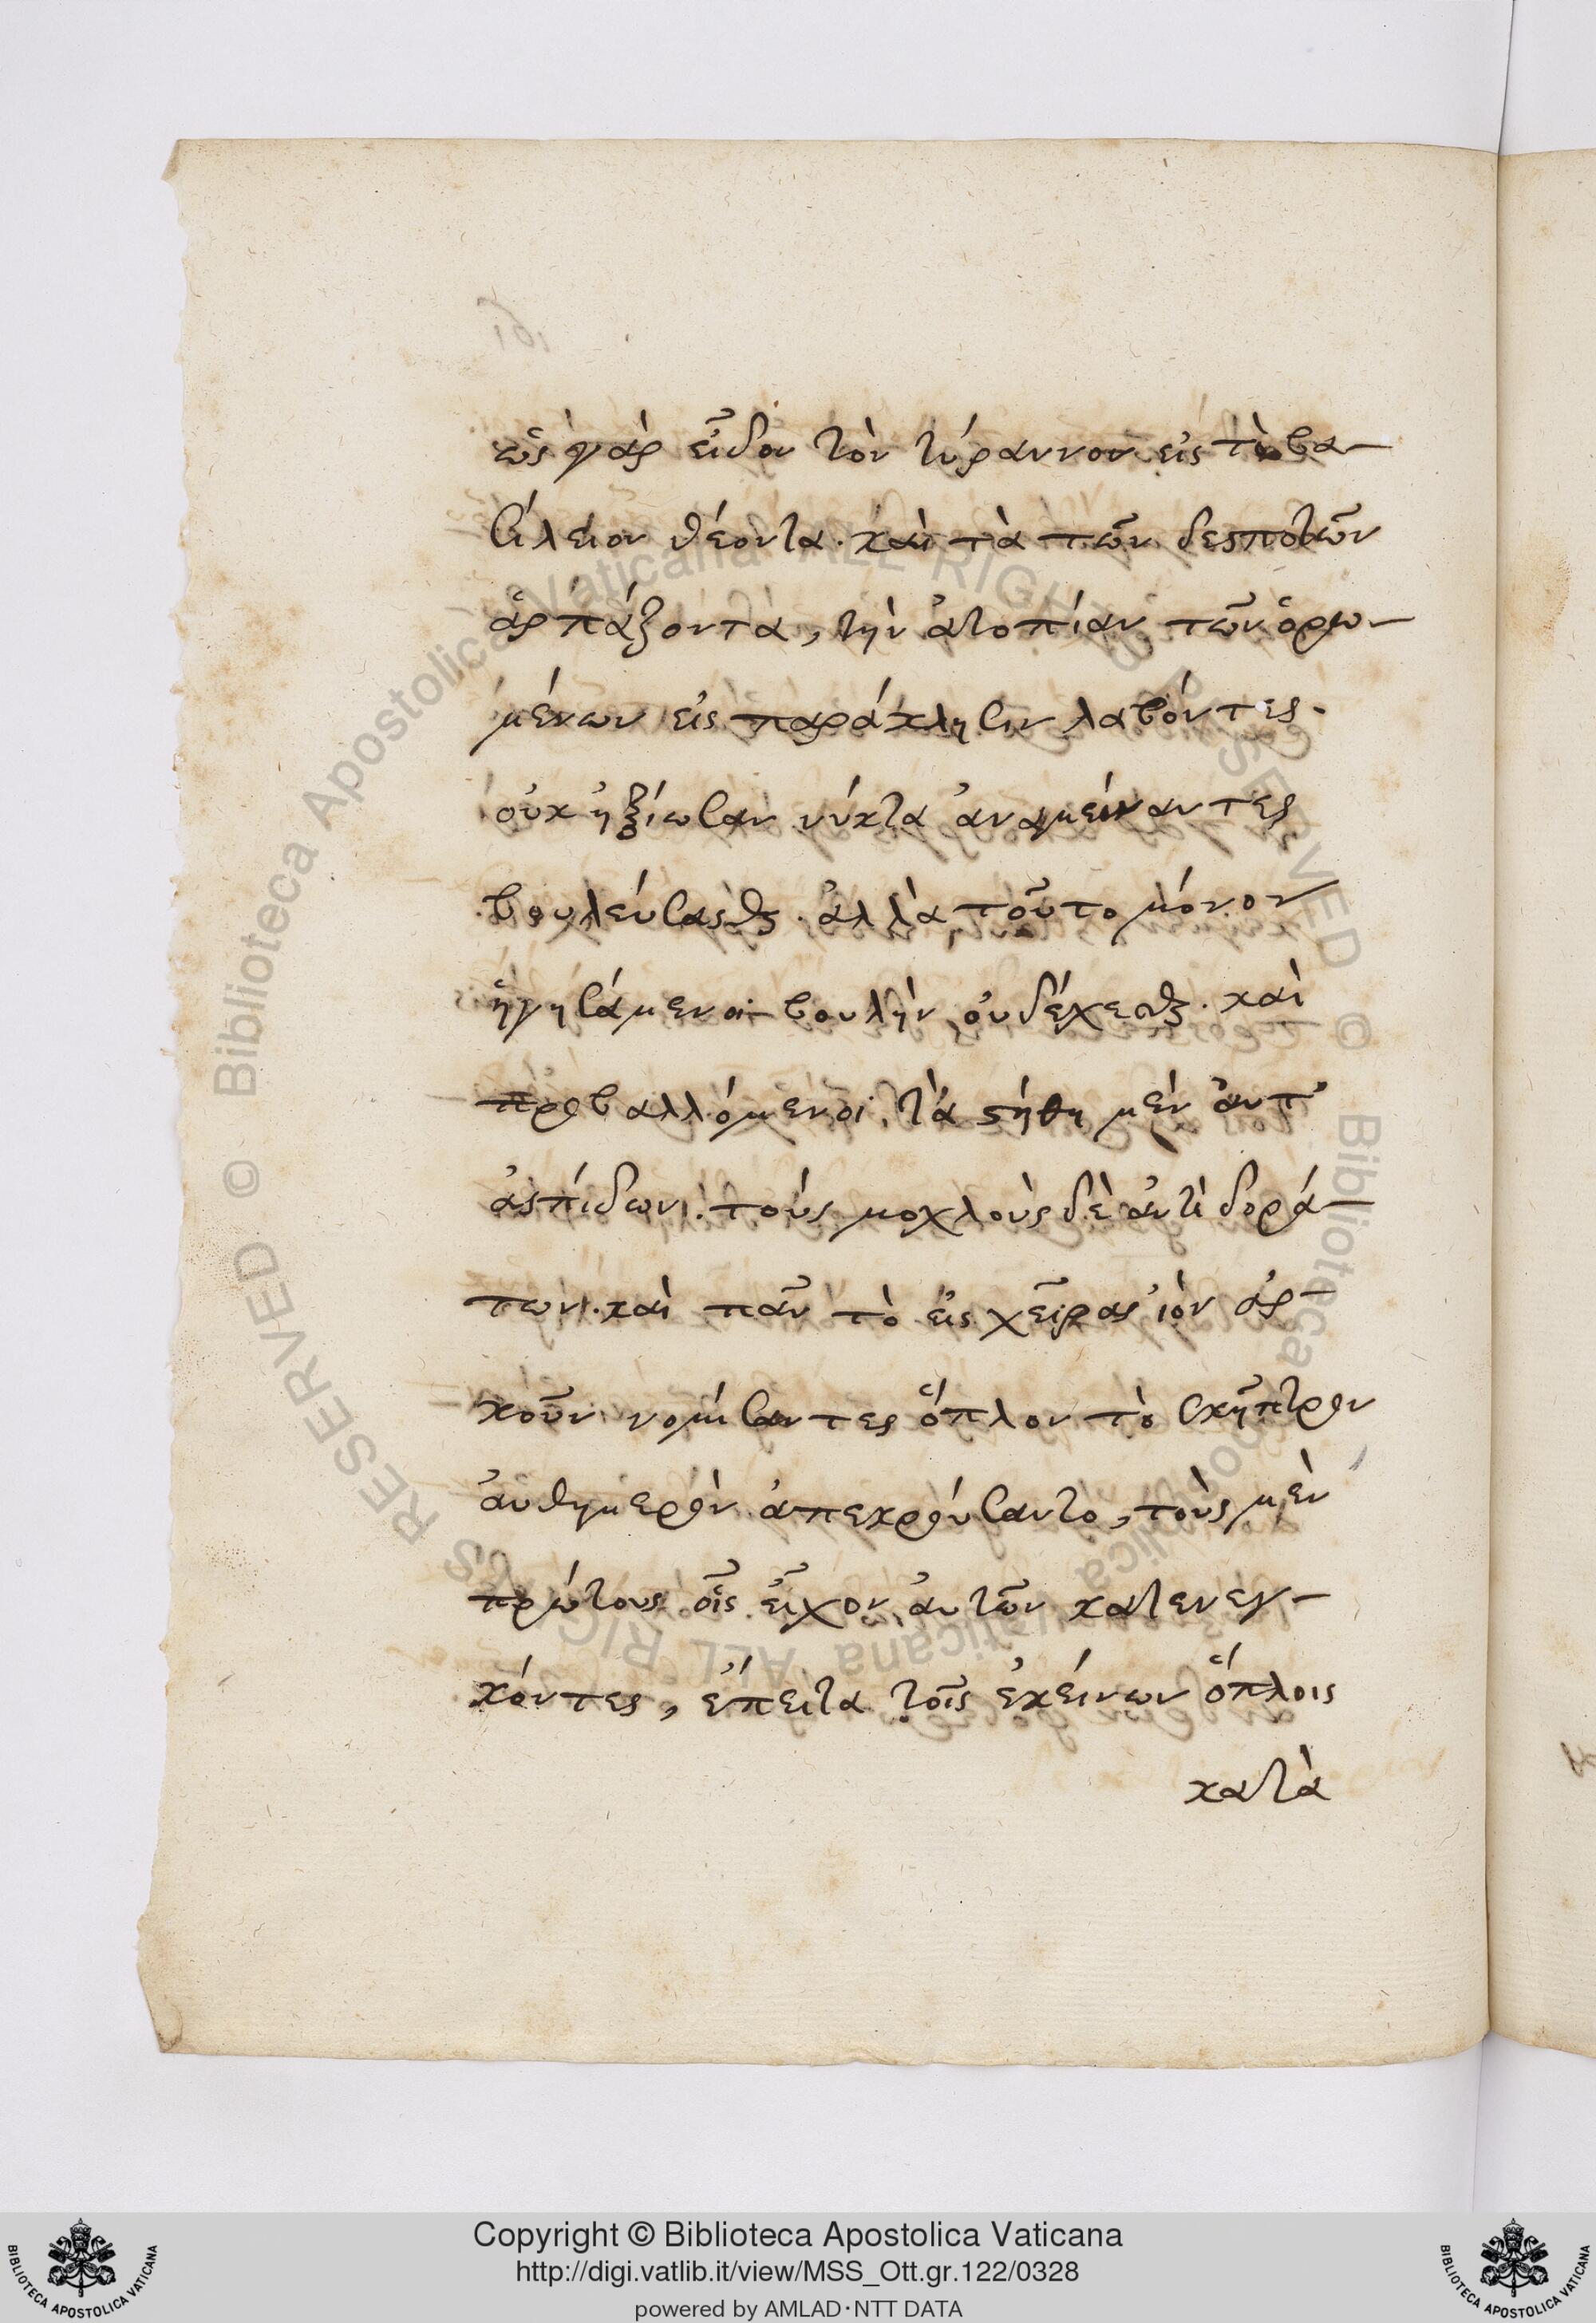 ὡς γὰρ εἶδον τὸν τύραννον εἰς τὸ βα-
σίλειον θέοντα· καὶ τὰ τῶν δεσποτῶν
ἁρπάζοντα, τὴν ἀτοπίαν τῶν ὁρω-
μένων εἰς παράκλησιν λαβόντες·
οὐκ ἠξίωσαν νύκτα ἀναμείναντες
βουλεύσασθαι· ἀλλὰ τοῦτο μόνον
ἡγησάμενοι βουλὴν οὐ δέχεσθαι· καὶ
προβαλλόμενοι τὰ στήθη μὲν ἀντ'
ἀσπίδων· τοὺς μοχλοὺς δὲ ἀντὶ δορά-
των· καὶ πᾶν τὸ εἰς χεῖρας ἰὸν ἀρ-
κοῦν νομίσαντες ὅπλον τὸ σκῆπτρον
αὐθημερὸν ἀπεκρούσαντο, τοὺς μὲν
πρώτους οἷς εἶχον αὐτῶν κατενεγ-
κόντες, ἔπειτα τοῖς ἐκείνων ὅπλοις
κατὰ
Copyright © Biblioteca Apostolica Vaticana
http://digi.vatlib.it/view/MSS_Ott.gr.122/0328
powered by AMLAD·NTT DATA
BIBLIOTECA APOSTOLICA VATICANA
BIBLIOTECA APOSTOLICA VATICANA
© Biblioteca Apostolica Vaticana ALL RIGHTS RESERVED © Biblioteca Apostolica Vaticana ALL RIGHTS RESERVED